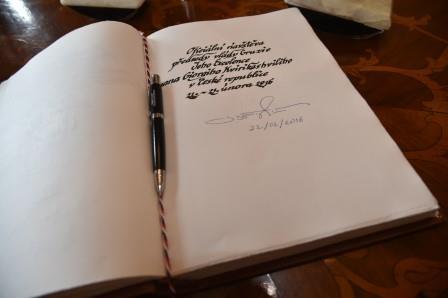 Oficiální návštěva
předsedy vlády Gruzie
Jeho Excelence
pana Giorgiho Kvirikašhviliho
v České republice
22. února 2016
22/02/2016